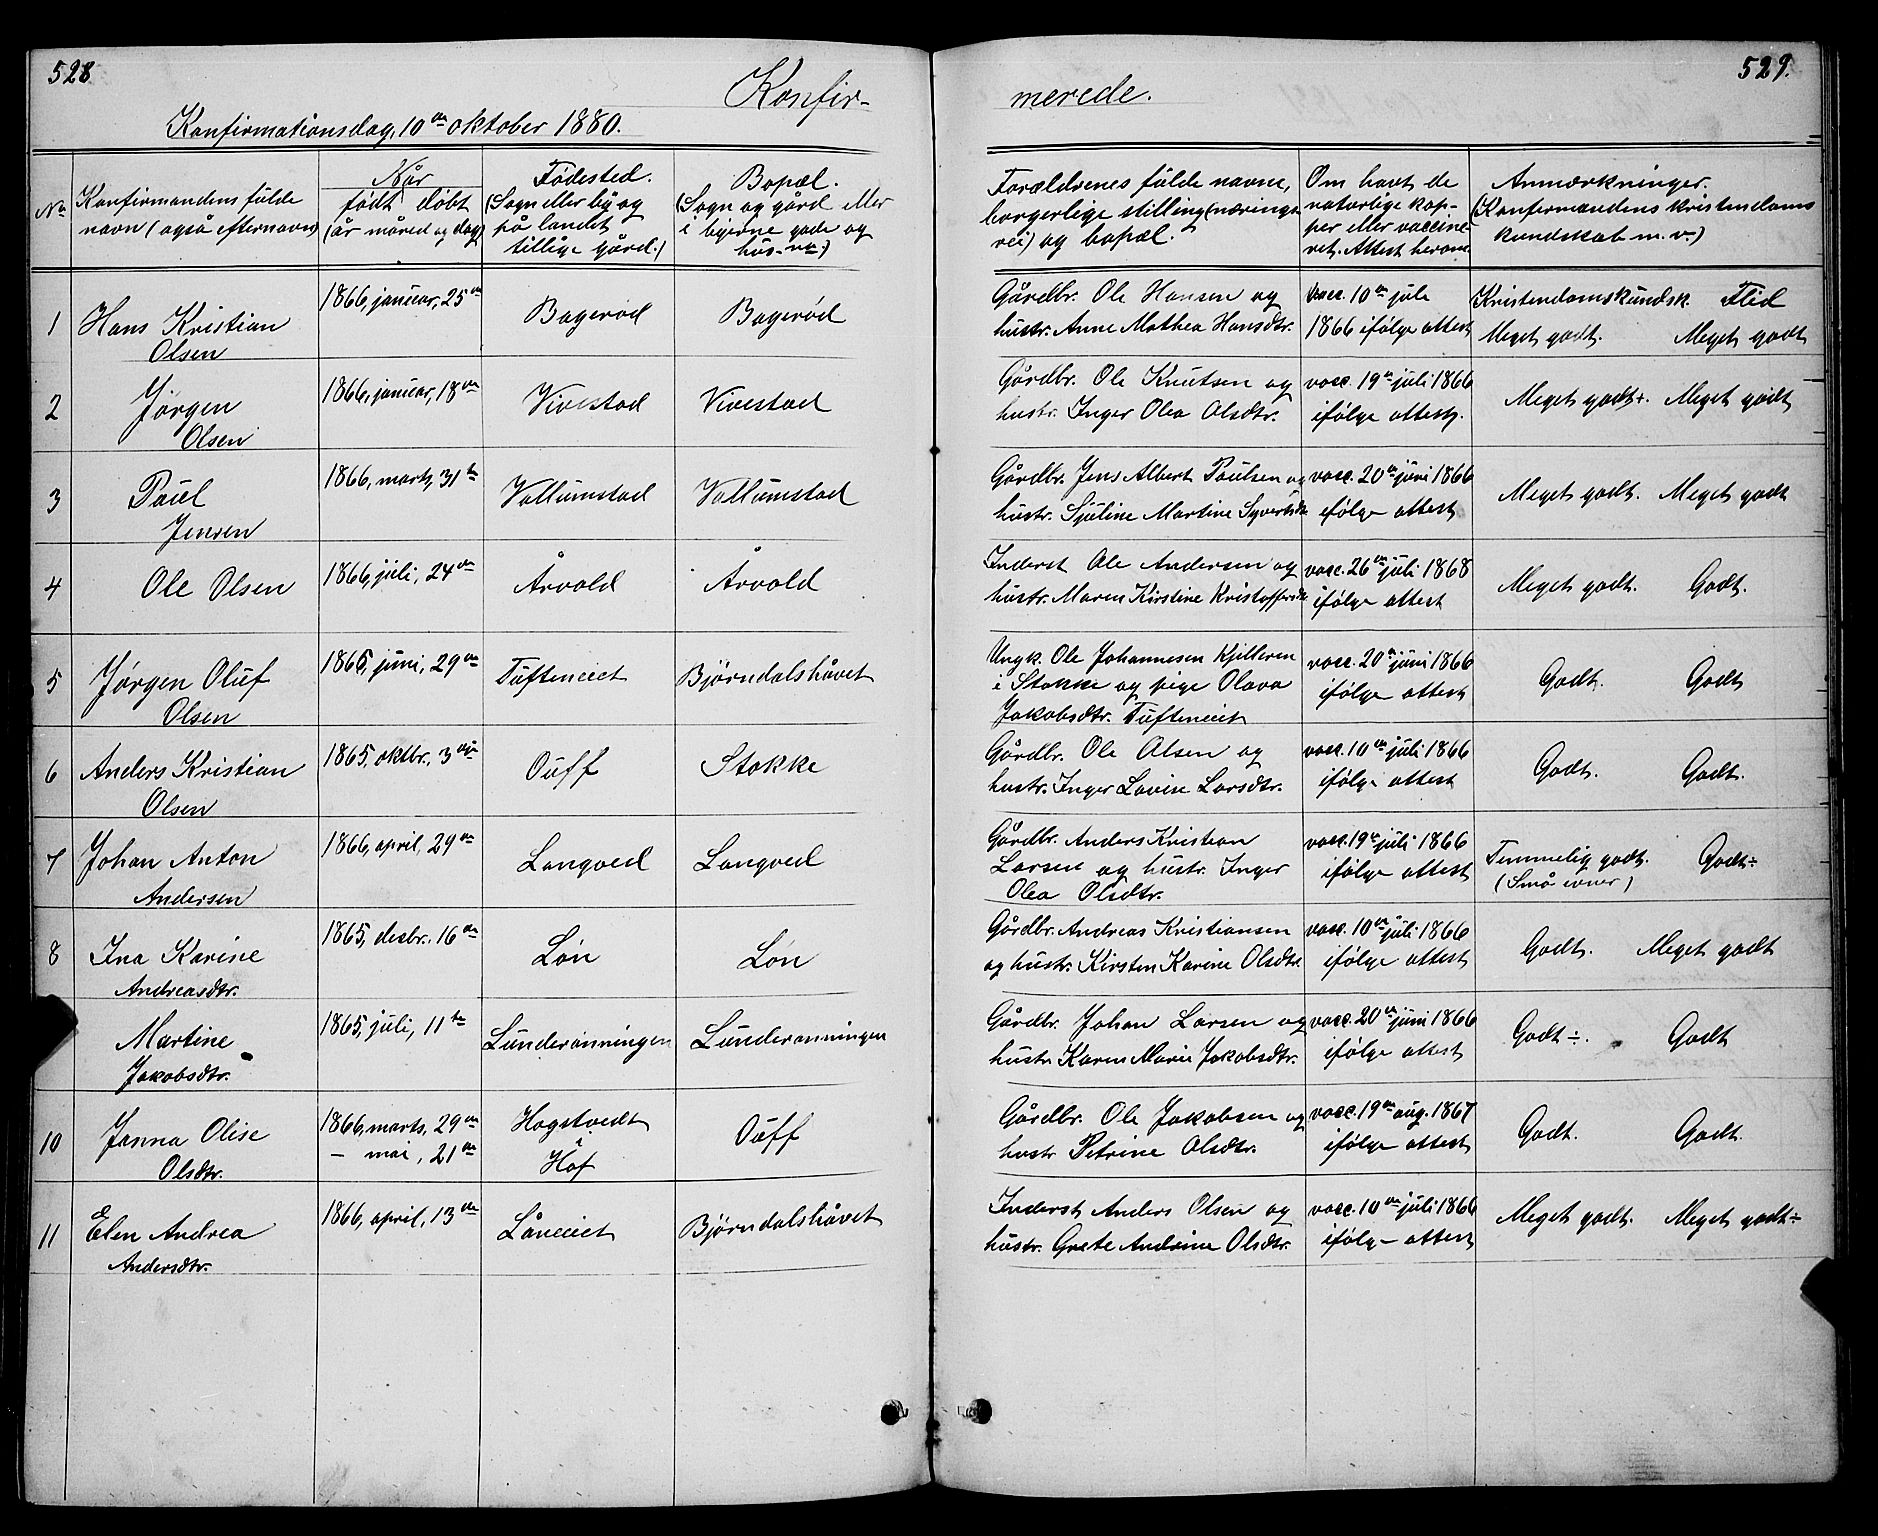 528
Konfir-
Konfirmationsdag, 10de oktober 1880.
No
Konfirmandens fulde
navn (også efternavn)
Når
født døbt
(år måned og dag)
Fødested.
(Sogn eller by og
på landet
tillige gård.)
Bopæl.
(Sogn og gård eller
i byerne gade og
hus-no.)
1
Hans Kristian
Olsen
1866, januar, 25de
Bagerød
Bagerød
2
Jørgen
Olsen
1866, januar, 18de
Vivestad
Vivestad
3
Paul
Jensen
1866, marts, 31te
Vallumstad
Vallumstad
4
Ole Olsen
1866, juli, 24de
Årvold
Årvold
5
Jørgen Oluf
Olsen
1865, juni, 29de
Tufteneiet
Bjørndalshåvet
6
Anders Kristian
Olsen
1865, oktbr., 3die
Ouff
Stokke
7
Johan Anton
Andersen
1866, april, 29de
Langved
Langved
8
Ina Karine
Andreasdtr.
1865, desbr. 16de
Løn
Løn
Martine
Jakobsdtr.
1865, juli, 11te
Sunderønningen
Sunderønningen
10
Janna Olise
Olsdtr.
1866, marts, 29de
— mai, 21de
Hagstvedt
i
Hof
Ouff
11
Elen Andrea
Andersdtr.
1866, april, 13de
Låneeiet
Bjørndalshåvet
529.
merede.
Forældrenes fulde navne,
borgerlige stilling (nærings-
vei) og bopæl.
Om havt de
naturlige kop-
per eller vaccine-
ret. Attest herom
Anmærkninger.
(Konfirmandens kristendoms
kundskab m. v.)
Gårdbr. Ole Hansen og
hustr. Anne Mathea Hansdtr.
vacc. 10de juli
1866 ifølge attest
Kristendomskundsk. Flid
Meget godt. Meget godt
Gårdbr. Ole Knutsen og
hustr. Inger Olea Olsdtr.
vacc. 19de juli 1866
ifølge attest.
Meget godt+. Meget godt
Gårdbr. Jens Albert Paulsen og
hustr. Sjuline Martine Syvertsdtr
vacc. 20de juni 1866
ifølge attest
Meget godt. Meget godt
Inderst Ole Andersen og
hustr. Maren Kirstine Kristoffersdtr
vacc. 26de juli 1868
ifølge attest
Meget godt. Godt.
Ungk. Ole Johannesen Kjilleren
i Stokke og pige Olava
Jakobsdtr. Tufteneiet
vacc. 20de juni 1866
ifølge attest
Godt. Godt
Gårdbr. Ole Olsen og
hustr. Inger Lovise Larsdtr.
vacc. 10de juli 1866
ifølge attest
Godt. Godt.
Gårdbr. Anders Kristian
Larsen og hustr. Inger
Olea Olsdtr.
vacc. 19de juli 1866
ifølge attest
Temmelig godt. Godt÷
(Små evner)
Gårdbr. Andreas Kristiansen
og hustr. Kirsten Karine Olsdtr
vacc. 10de juli 1866
ifølge attest
Godt. Meget godt
Gårdbr. Johan Larsen og
hustr Karen Marie Jakobsdtr.
vacc. 20de juni 1866
ifølge attest
Godt ÷. Godt
Gårdbr. Ole Jakobsen og
hustr Petrine Olsdtr.
vacc. 19de aug. 1867
ifølge attest
Godt. Godt.
Inderst Anders Olsen og
hustr. Grete Andrine Olsdtr.
vacc. 10de juli 1866
ifølge attest
Meget godt. Meget godt÷